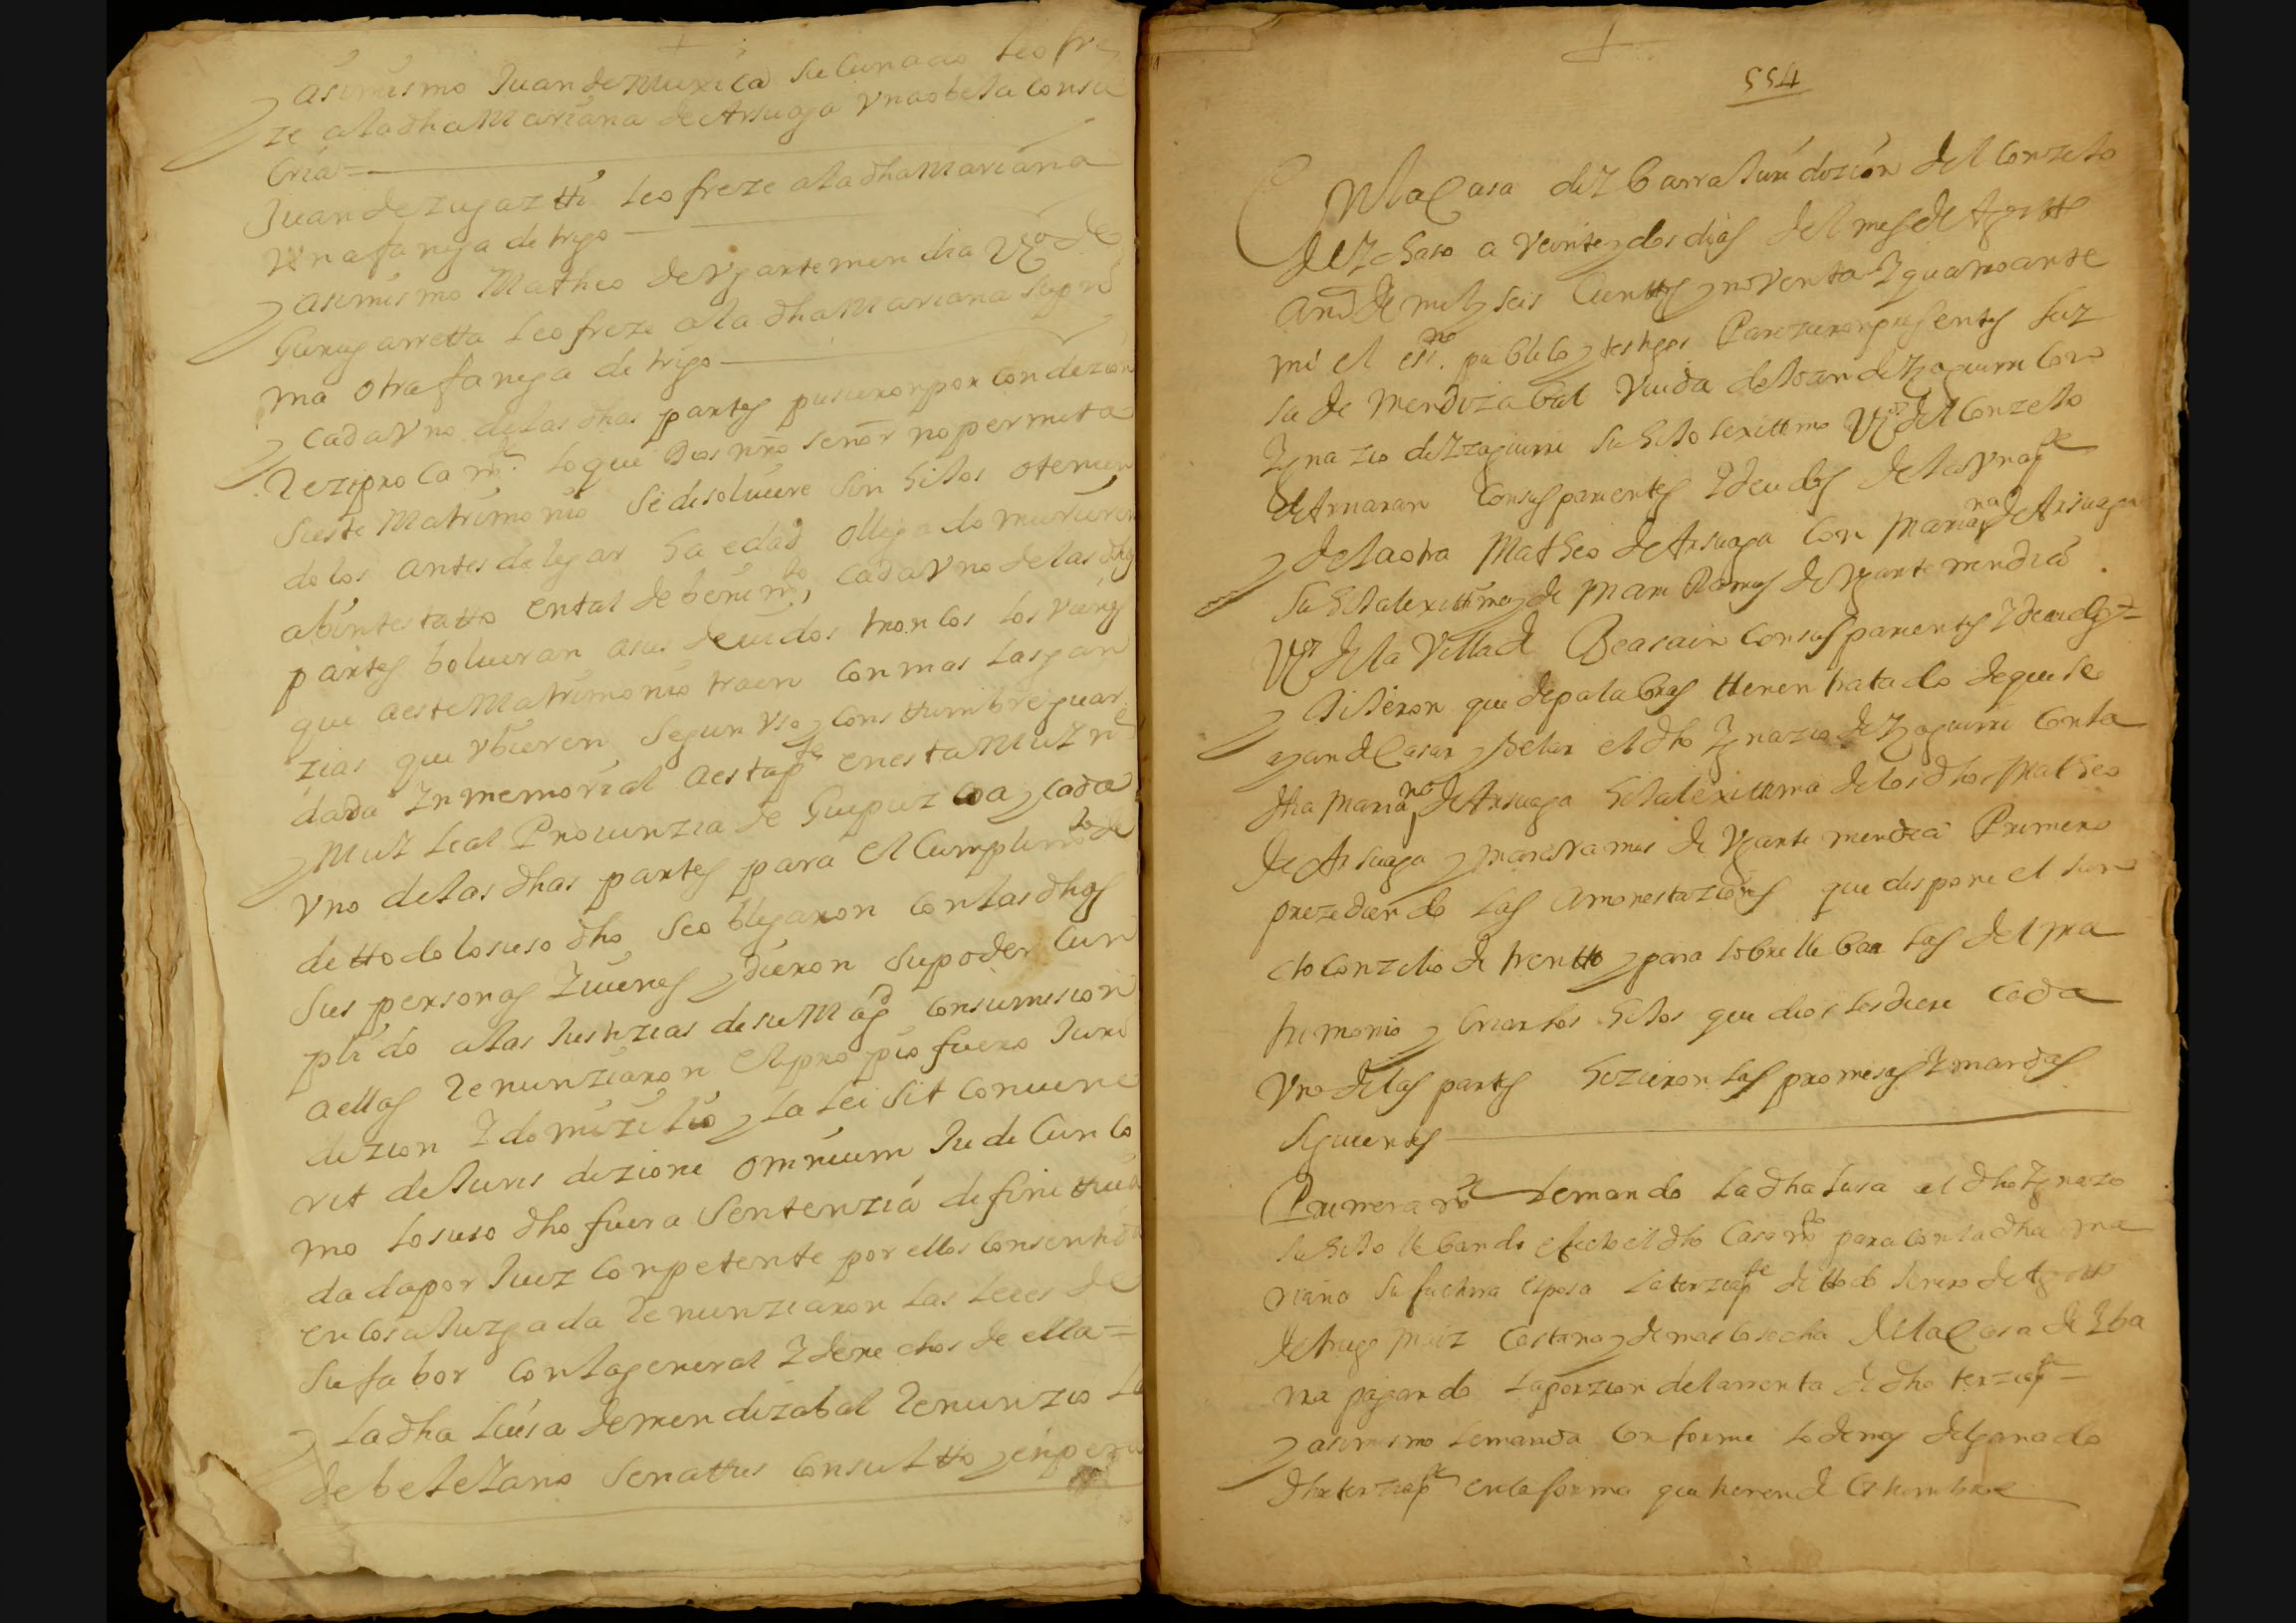 y asimismo Juan de Muxica su cunado le ofre
ze a la dha Mariana de Arsuaga vna obeja con su
Cria =
Juan de Zugaztti le ofreze a la dha Mariana
vna fanega de trigo
y asimismo Matheo de Vgartemendia Vº de
Gurugarretta le ofreze a la dha Mariana su pri
ma otra fanega de trigo
y cada vno de las dhas partes pusieron por condizion
rezipro ca mte lo que Dios nro señor no permita
si este Matrimonio se disoluiere sin hijos o tenien
dolos antes de legar ha edad o llegado murieren
abintestatto en tal debenimto cada vno de las dhas
partes bolueran a sus deuidos troncos los vienes
que a este Matrimonio traen con mas las ganan
zias que vbieren segun vso y costtumbre guar
dada Inmemorial a esta pte en esta Mui N
y Mui Leal Prouinzia de Guipuzcoa y cada
vno de las dhas partes para el Cumplimto de
de ttodo lo suso dho se obligaron con las dhas
sus personas I uienes y dieron su poder Cun
plido a las Justizias de su Magd con sumision
a ellas renunziaron el propio fuero Juri
dizion I domizilio y la lei sit conuene
rit de Juris dizione omnium Judicun co
mo lo suso dho fuera sentenzia definittiua
dada por Juez conpetente por ellos consentida
en cosa Juzgada renunziaron las leies de
su fabor con la general I derechos de ella =
y la dha Luisa de Mendizabal renunzio la
de belelzano senattus consultto y enpera
554
En la Casa de Ibarra Juridizion del Conzejo
de Ichaso a veinte y dos dias del mes de Agostto
año de mil y seis Cienttos y noventa I quatro ante
mi el essno publico y testigos Parezieron presentes Luz
sa de Mendizabal viuda de Joan de Izaguirre con
Ignazio de Izaguirre su hijo lexittimo Vº del Conzejo
de Arnaran con sus parientes I deudos de la vna pte
y de la otra Matheo de Arsuaga con Mariana de Arsuaga
su hija lexittima y de Mari Ramus de Vgartemendia
Vos de la Villa de Beasain con sus parientes I deudos =
y Dijeron que de palabras ttienen tratado de que se
ayan de Casar y belar el dho Ignazio de Izaguirre con la
dha Mariana de Arsuaga hija lexittima de los dhos Matheo
de Arsuaga y Maria Ramus de Vgartemendia Primero
prezediendo las amonestaziones que dispone el san
cto Conzilio de trentto y para sobrellebar las del ma
trimonio y Criar los hijos que dios les diere cada
vno de las partes hizieron las promesas I mandas
siguientes
Primera mte le mando la dha Luisa al dho Ignazio
su hijo llebando efecto el dho Casamto para con la dha Ma
riana su futura esposa la terzia pte de ttodo Jenero de Agosto
de trigo maiz Castana y demas cosecha de la Casa de Iba
rra pagando la porzion de la rrenta de dha terzia pte =
y asimismo le manda conforme lo demas del ganado
dha terzia pte en la forma que tienen de Costumbre